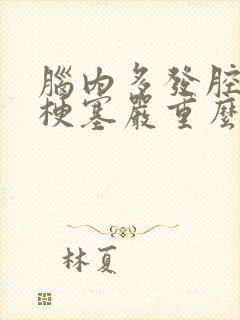 腦內多發腔
梗塞嚴重麼
林夏